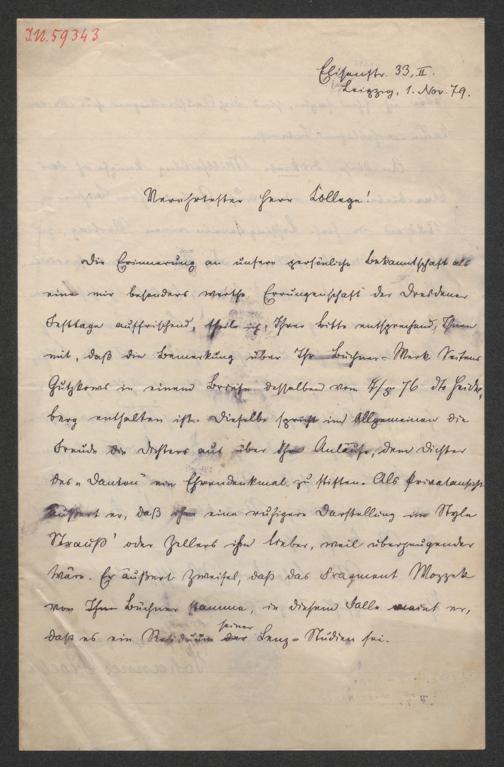 IN. 59343
Elisenstr. 33, II.
Leipzig, 1. Nov. 79.
Verehrtester Herr College!
Die Erinnerung an unsere persönliche Bekanntschaft als
eine mir besonders werthe Errungenschaft der Dresdener
Festtage auffrischend, theile ich, Ihrer Bitte entsprechend, Ihnen
mit, daß die Bemerkung über Ihr Büchner-Werk Seitens
Gutzkows in einem Briefe desselben vom 76 dto Heidel-
berg enthalten ist. Dieselbe spricht im Allgemeinen die
Freude des Dichters aus über Ihre Anläufe, dem Dichter
des „Danton" ein Ehrendenkmal zu stiften. Als Privatansicht
äußert er, daß ihm eine ruhigere Darstellung im Style
Strauß' oder Zellers ihm lieber, weil überzeugender
wäre. Er äußert Zweifel, daß das Fragment Wozzek
von Ihrem Büchner stamme, in diesem Falle meint er,
daß es ein Residuum seiner Lenz-Studien sei.